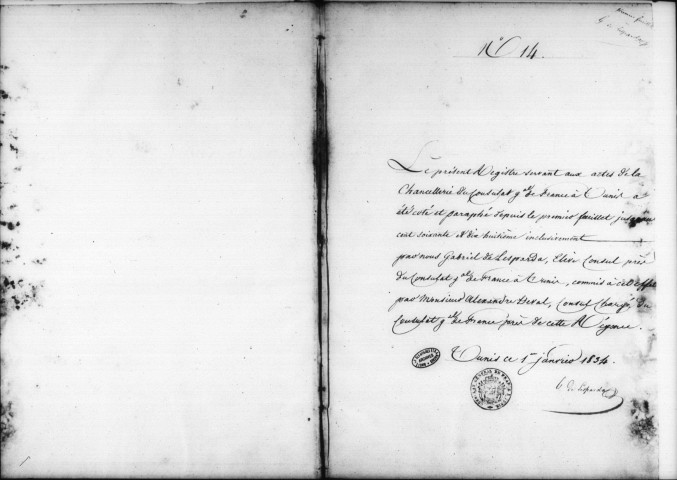 N.° 14.
Le présent Registre servant aux actes de la
Chancellerie du Consulat g.al de France à Tunis a
été coté et paraphé depuis le premier feuillet jusqu'au
cent soixante & dix huitième inclusivement
par nous Gabriel de Lesparda, Elève Consul près
du Consulat g.al de France à Tunis, commis à cet effet
par Monsieur Alexandre Deval, Consul Chargé du
Consulat g.al de France près de cette Régence.
Tunis ce 1er janvier 1834.
G de Lesparda